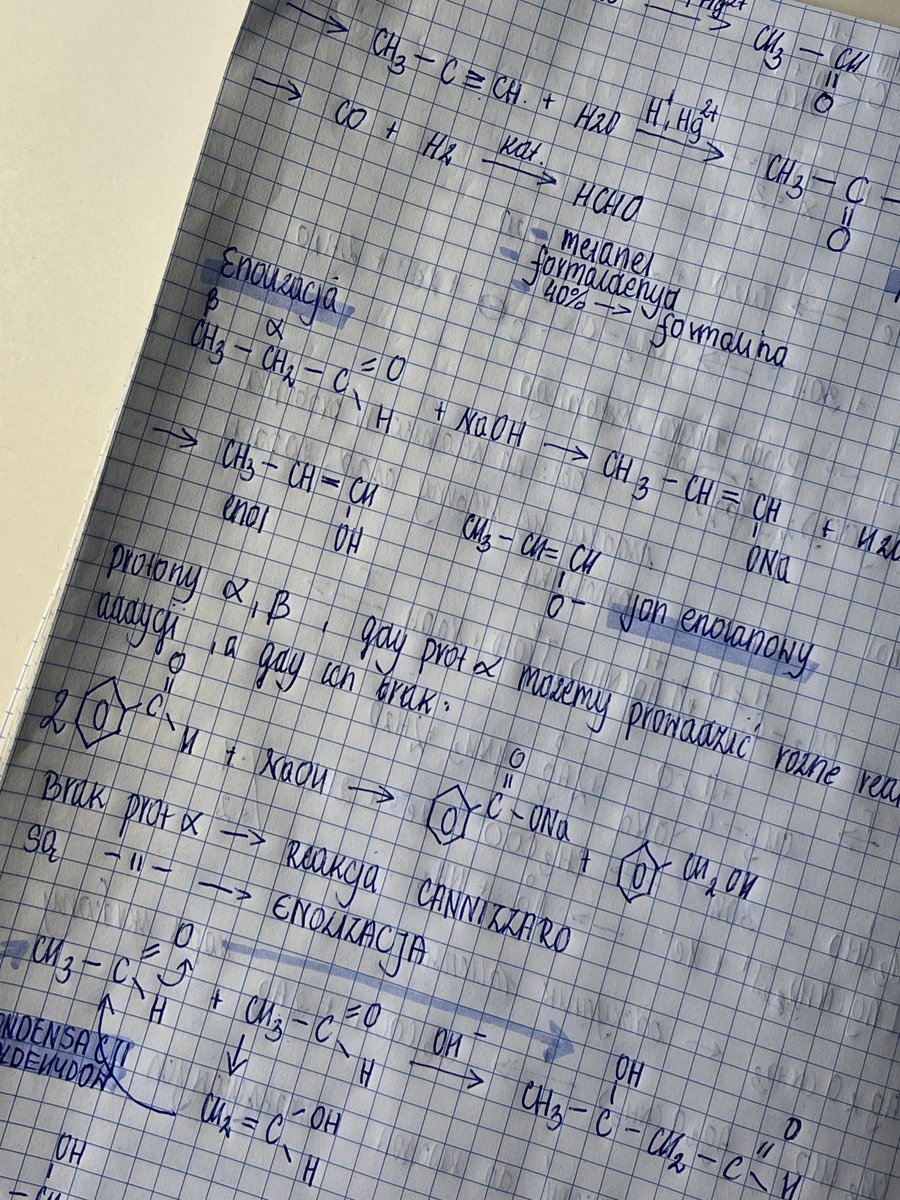 Hg2+
→ CH3 – CH
=
O
→ CH3 – C ≡ CH + H2O H+, Hg2+ → CH3 – C –
=
O
CO + H2 kat. → HCHO
- metanel
- formaldehyd
40% → formalina
Enolizacja
β α
CH3 – CH2 – C = O
\ H + NaOH → CH3 – CH = CH + H2O
ONa
→ CH3 – CH = CH
enol OH
CH3 – CH = CH
O– jon enolanowy
protony α, β, gdy prot α możemy prowadzić różne
addycji, a gdy ich brak:
2 C = O
\ H + NaOH → C = O – ONa + CH2OH
Brak prot α → Reakcja CANNIZZARO
są –"– → ENOLIZACJA
CH3 – C = O
\ H + CH3 – C = O
\ H OH– → CH3 – C – CH2 – C = O
OH H
↓
CH2 = C – OH
\ H
OH